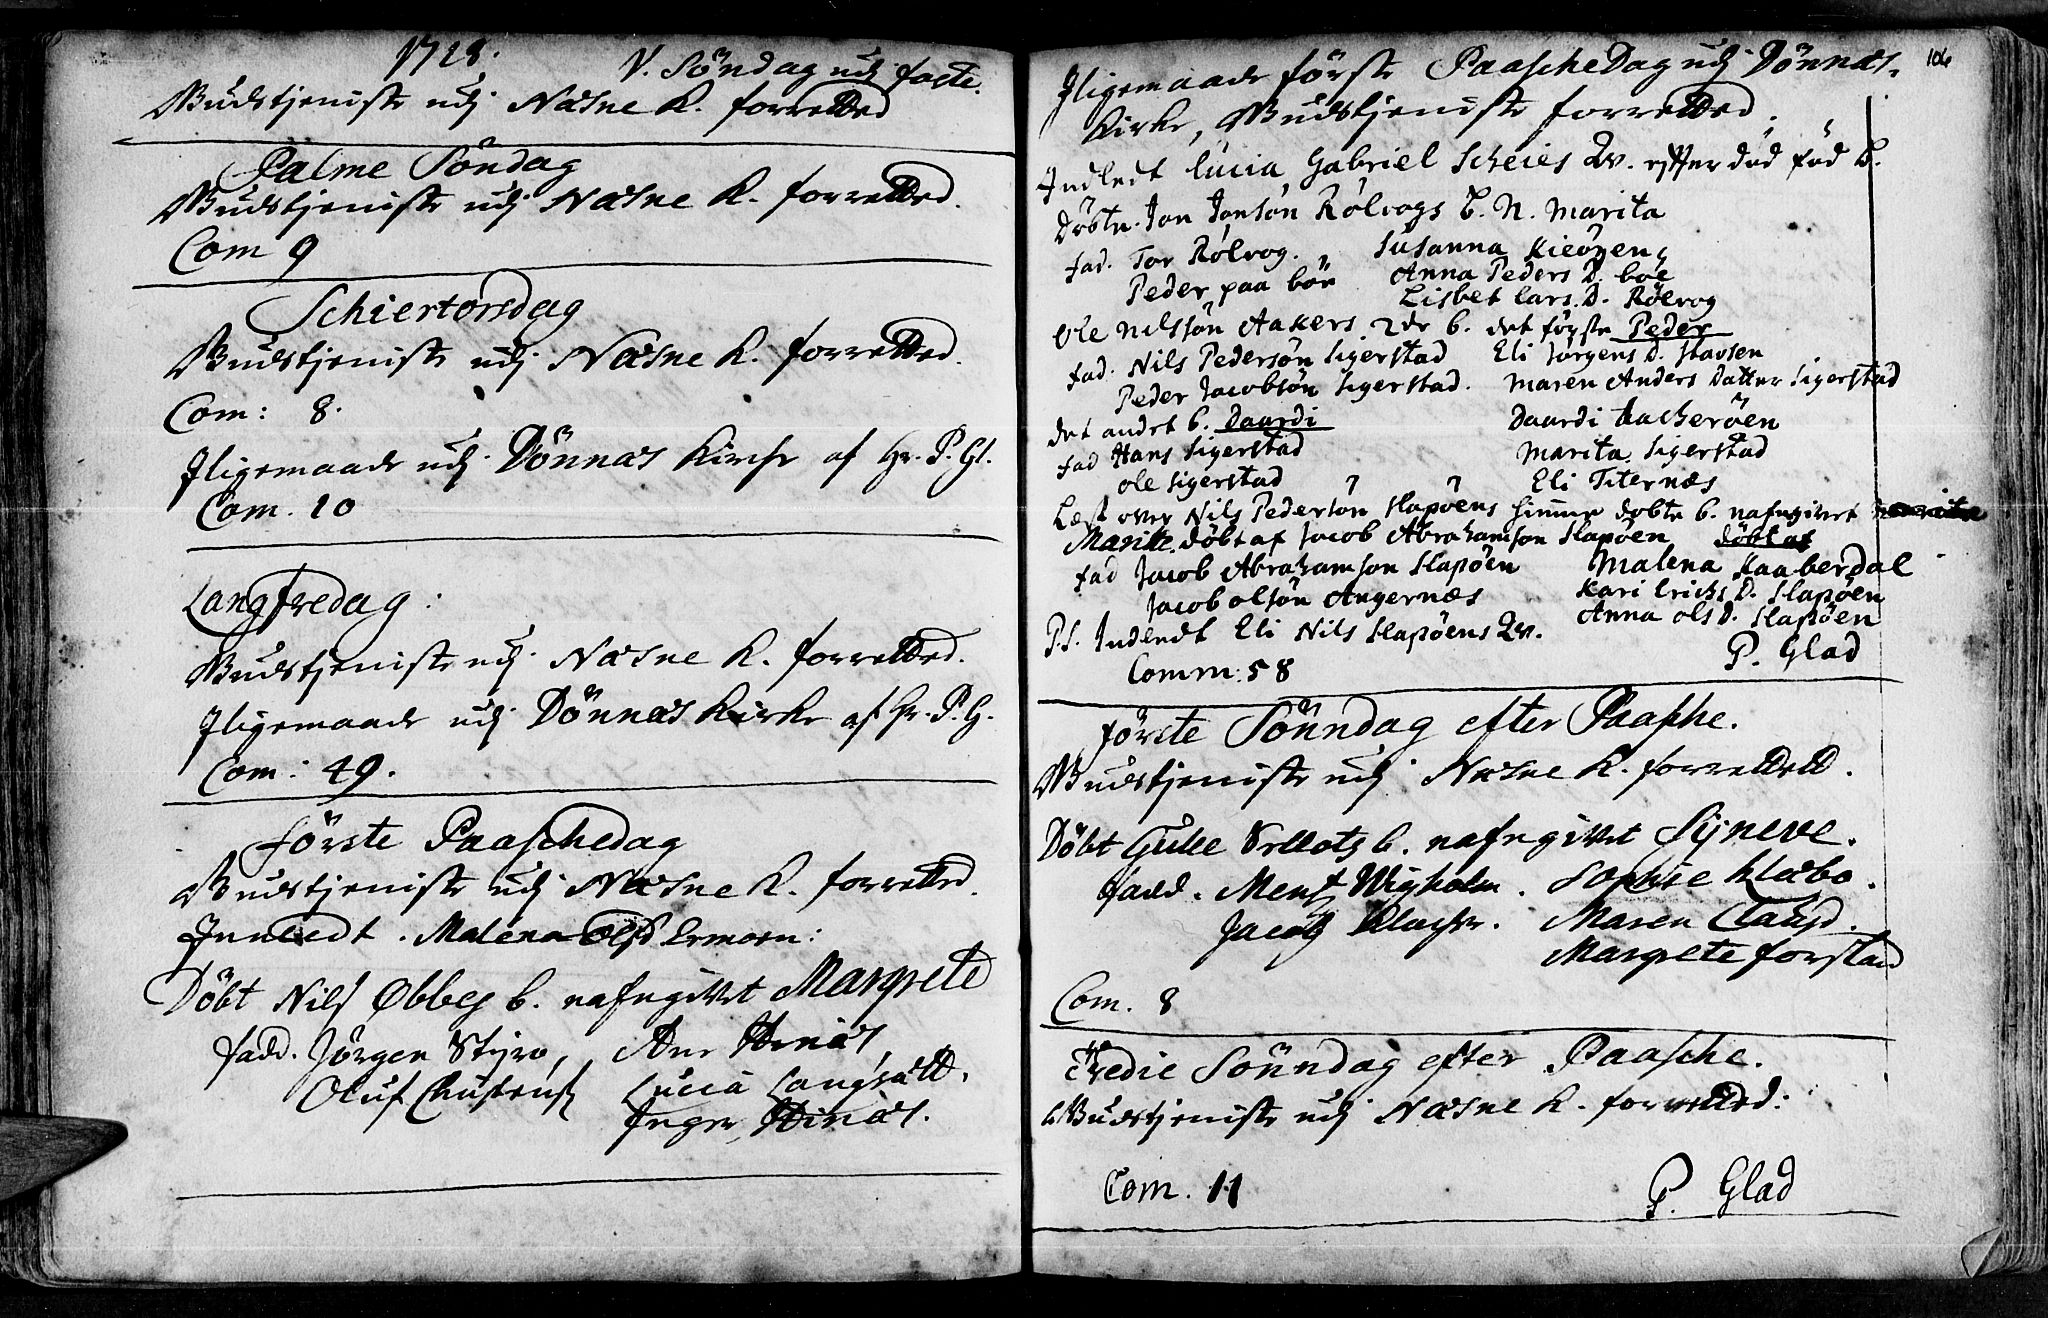 1728.
V. Söndag udj faste.
Gudstjeniste udj Næsne K. forretted
Palme Söndag
Gudstjeniste udj Næsne K. forretted.
Com 9
Schiertorsdag
Gudstjeniste udj Næsne K. forretted.
Com: 8.
Jligemaade udj Dönnæs Kirche af Hr. P. Gl.
Com. 10
Langfredag:
Gudstjeniste udj Næsne K. forretted.
Jligemaade udj Dönnæs Kirke af Hr. P. G.
Com: 49.
Förste Paaschedag
Gudstjeniste udj Næsne K. forretted.
Innledt. Malena Olsd
Döbt Nils b. nafngivet Margrete
fadd. Jörgen Styrv, Ane
Oluf Lucia Langsætt.
Inger
106
Jligemaade förste Paasche Dag udj Dönnæs.
Kirke, Gudstjeniste forretted.
Indledt Lucia Gabriel Scheies Qv. effter död föd b.
Döbte. Jon Jonsön Rölvogs b. N. Marita
fad. Tor Rölvog. Susanna
Peder paa böe Anna Peders D. boe
Lisbet Lars. D. Rölvog
Ole Nilssön Aakers 2de b. det fögste Peder
fad. Nils Pedersön Sigerstad Eli Jörgens D. Stavsen
Peder Jacobsön Sigerstad. Maren Anders Datter Sigerstad
det andet b. Daardi Daardi
fad Hans Sigerstad Marita Sigerstad
Ole Sigerstad Eli Titernæs
Læst over Nils Pedersön Slapöens hiemme döbte b. nafngivet
Marite. döbt af Jacob Abrahamson Slapöen döbt af
fad Jacob Abrahamson Slapöen Malena Kaaberdal
Jacob Olsön Angernæs Kari Erichs D. Slapöen
Anna Ols D. Slapöen
P.S. Indledt Eli Nils Slapöens Qv.
Comm: 58 P. Glad
förste Sönndag efter Paasche.
Gudstjeniste udj Næsne K. forrettett.
Döbt b. nafngivet Syneve.
fadd. Sophie Klæbo.
Jacob Maren Clausd.
Margrete forstad
Com. 8
Tredie Sönndag efter Paasche.
Gudstjeniste udj Næsne K. forretted:
Com. 11 P. Glad